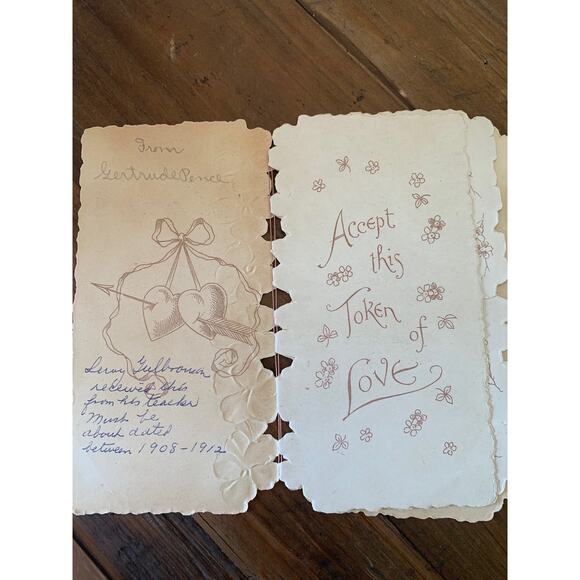 From
Gertrude Pence
Leroy
received this
from his teacher
Must be
about dated
between 1908-1912
Accept
this
Token
of
Love